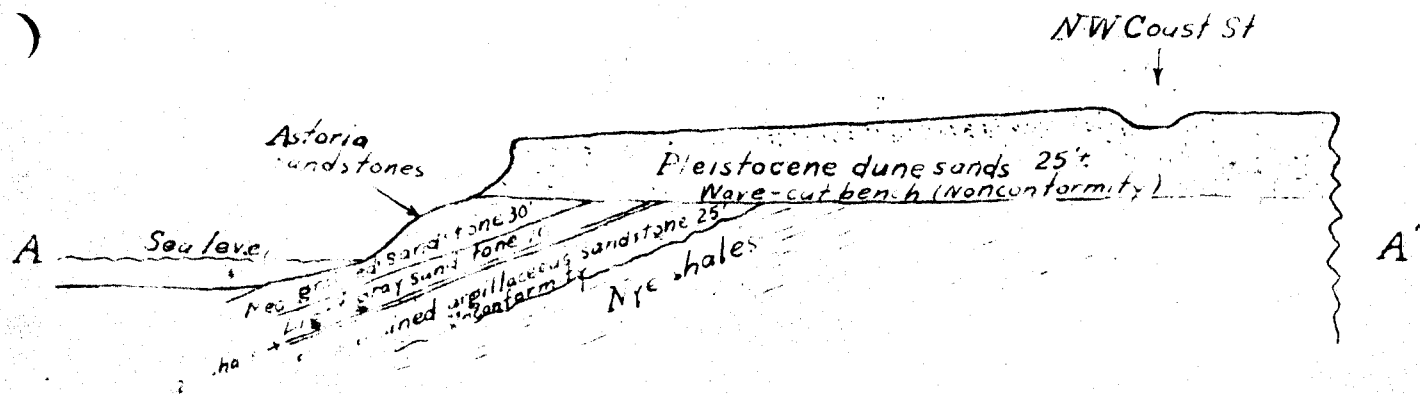 )
NW Coast St
Astoria
sandstones
Pleistocene dune sands 25'±
Wave-cut bench (Nonconformity)
A
Sea leve
A'
sandstone 30'
gray sand tone
ined argillaceous sandstone 25'
Nye shales